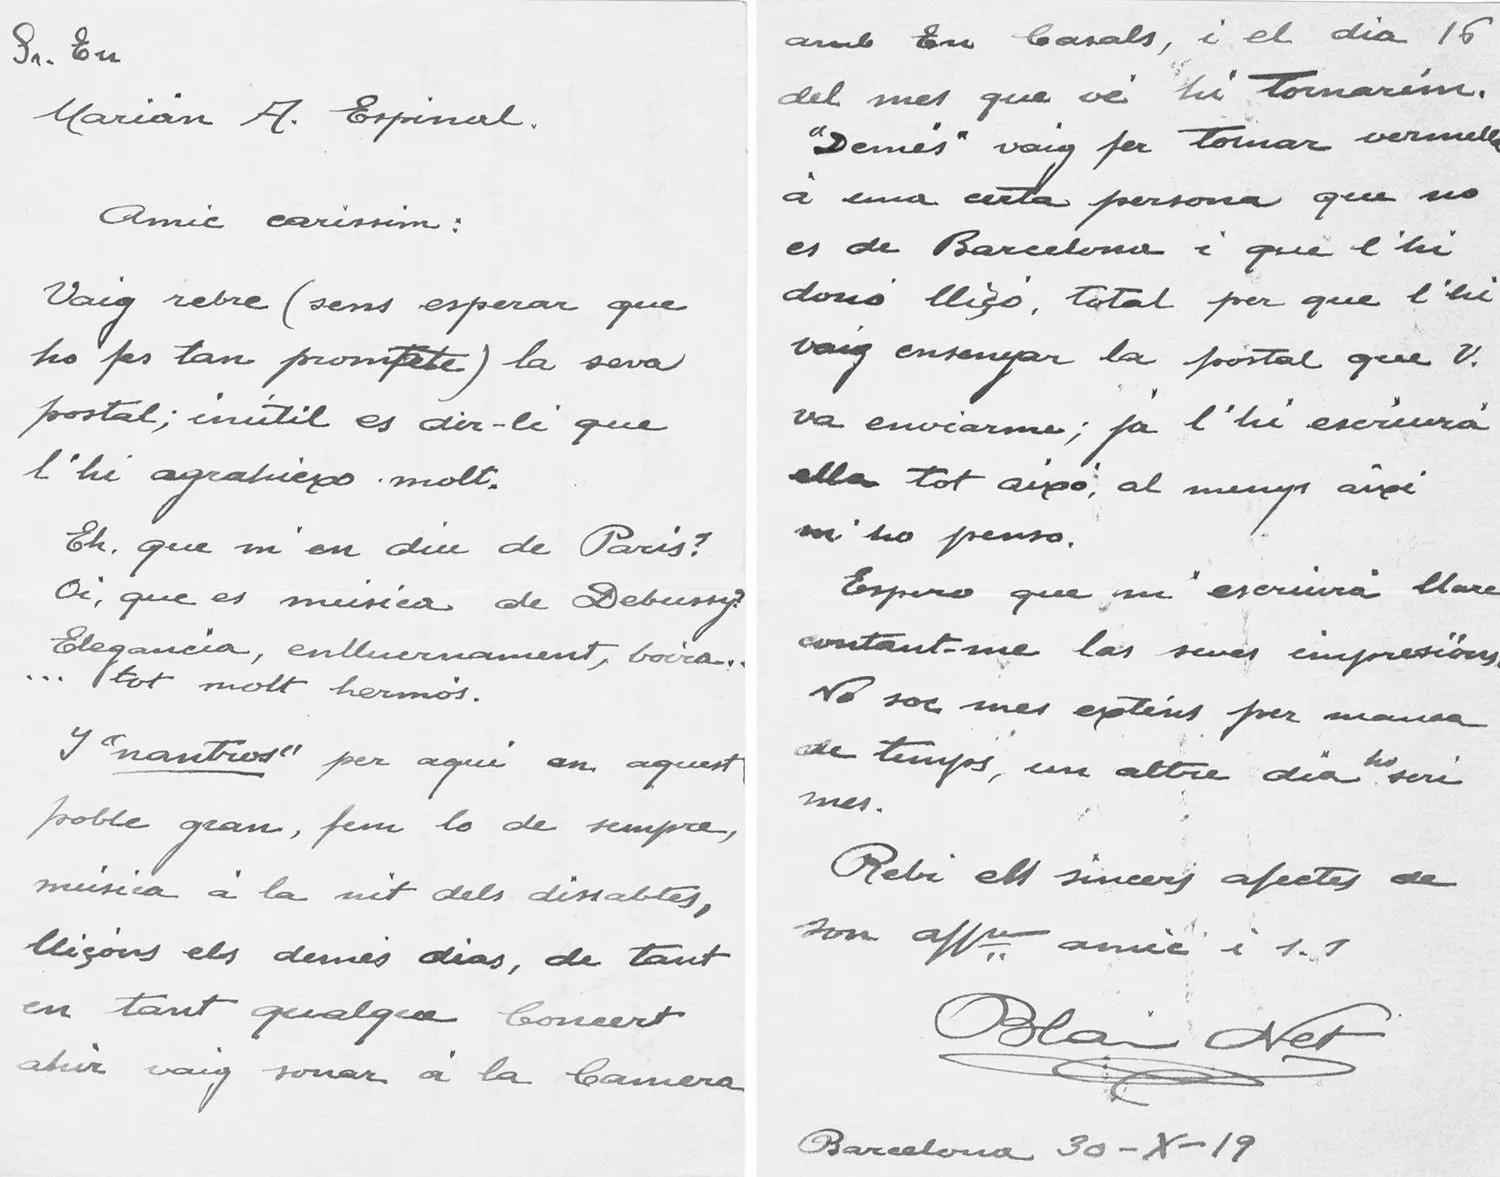 Sr. En
Marián A. Espinal.
Amic caríssim:
Vaig rebre (sens esperar que
ho fes tan promte) la seva
postal; inútil es dir-li que
l'hi agrahiexo molt.
Eh, que m'en diu de París?
Oi, que es música de Debussy?
Elegancia, enlluernament, boira..
... tot molt hermós.
Y "nantros" per aquí en aquest
poble gran, fem lo de sempre,
música á la nit dels dissabtes,
lliçóns els demés dias, de tant
en tant qualque Concert
ahir vaig sonar á la Camera
amb En Casals, i el dia 16
del mes que vé hi tornarém.
"Demés" vaig fer tornar vermella
á una certa persona que no
es de Barcelona i que l'hi
donó lliçó, total per que l'hi
vaig ensenyar la postal que V.
va enviarme; ja l'hi escriurá
ella tot aixó, al menys aixi
m'ho penso.
Espero que m'escriurá llarc
contant-me las seves impresións,
No soc mes exténs per manca
de temps, un altre dia ho seri
mes.
Rebi els sincers afectes de
son affm amic i s.s
Blai Net
Barcelona 30-X-19